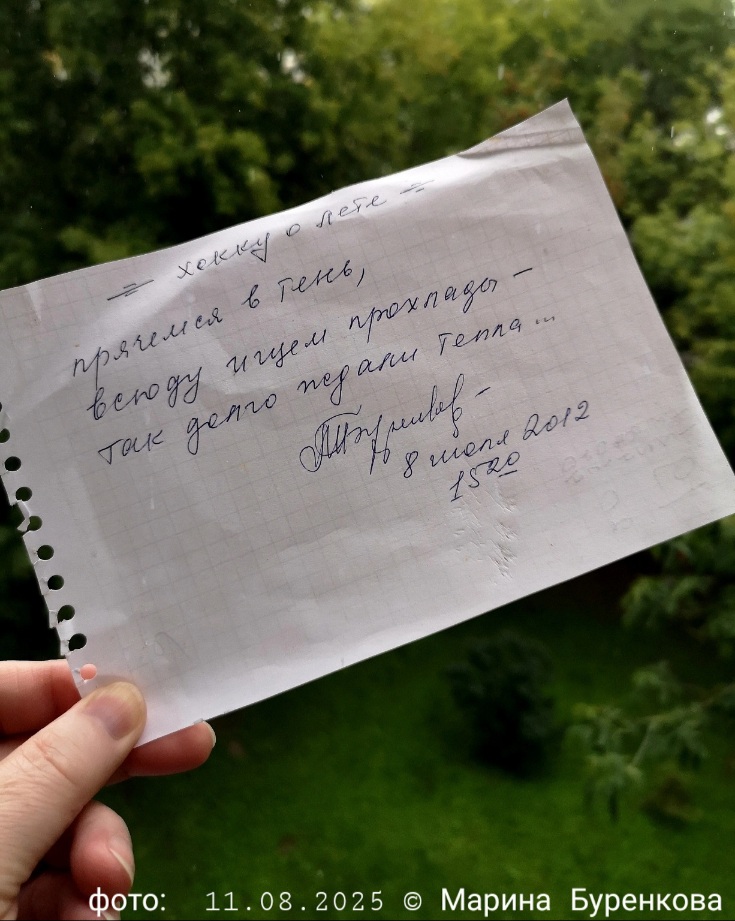 = хокку о лете =
прячемся в тень,
всюду ищем прохлады –
так долго ждали тепла...
8 июля 2012
15 20
фото: 11.08.2025 © Марина Буренкова